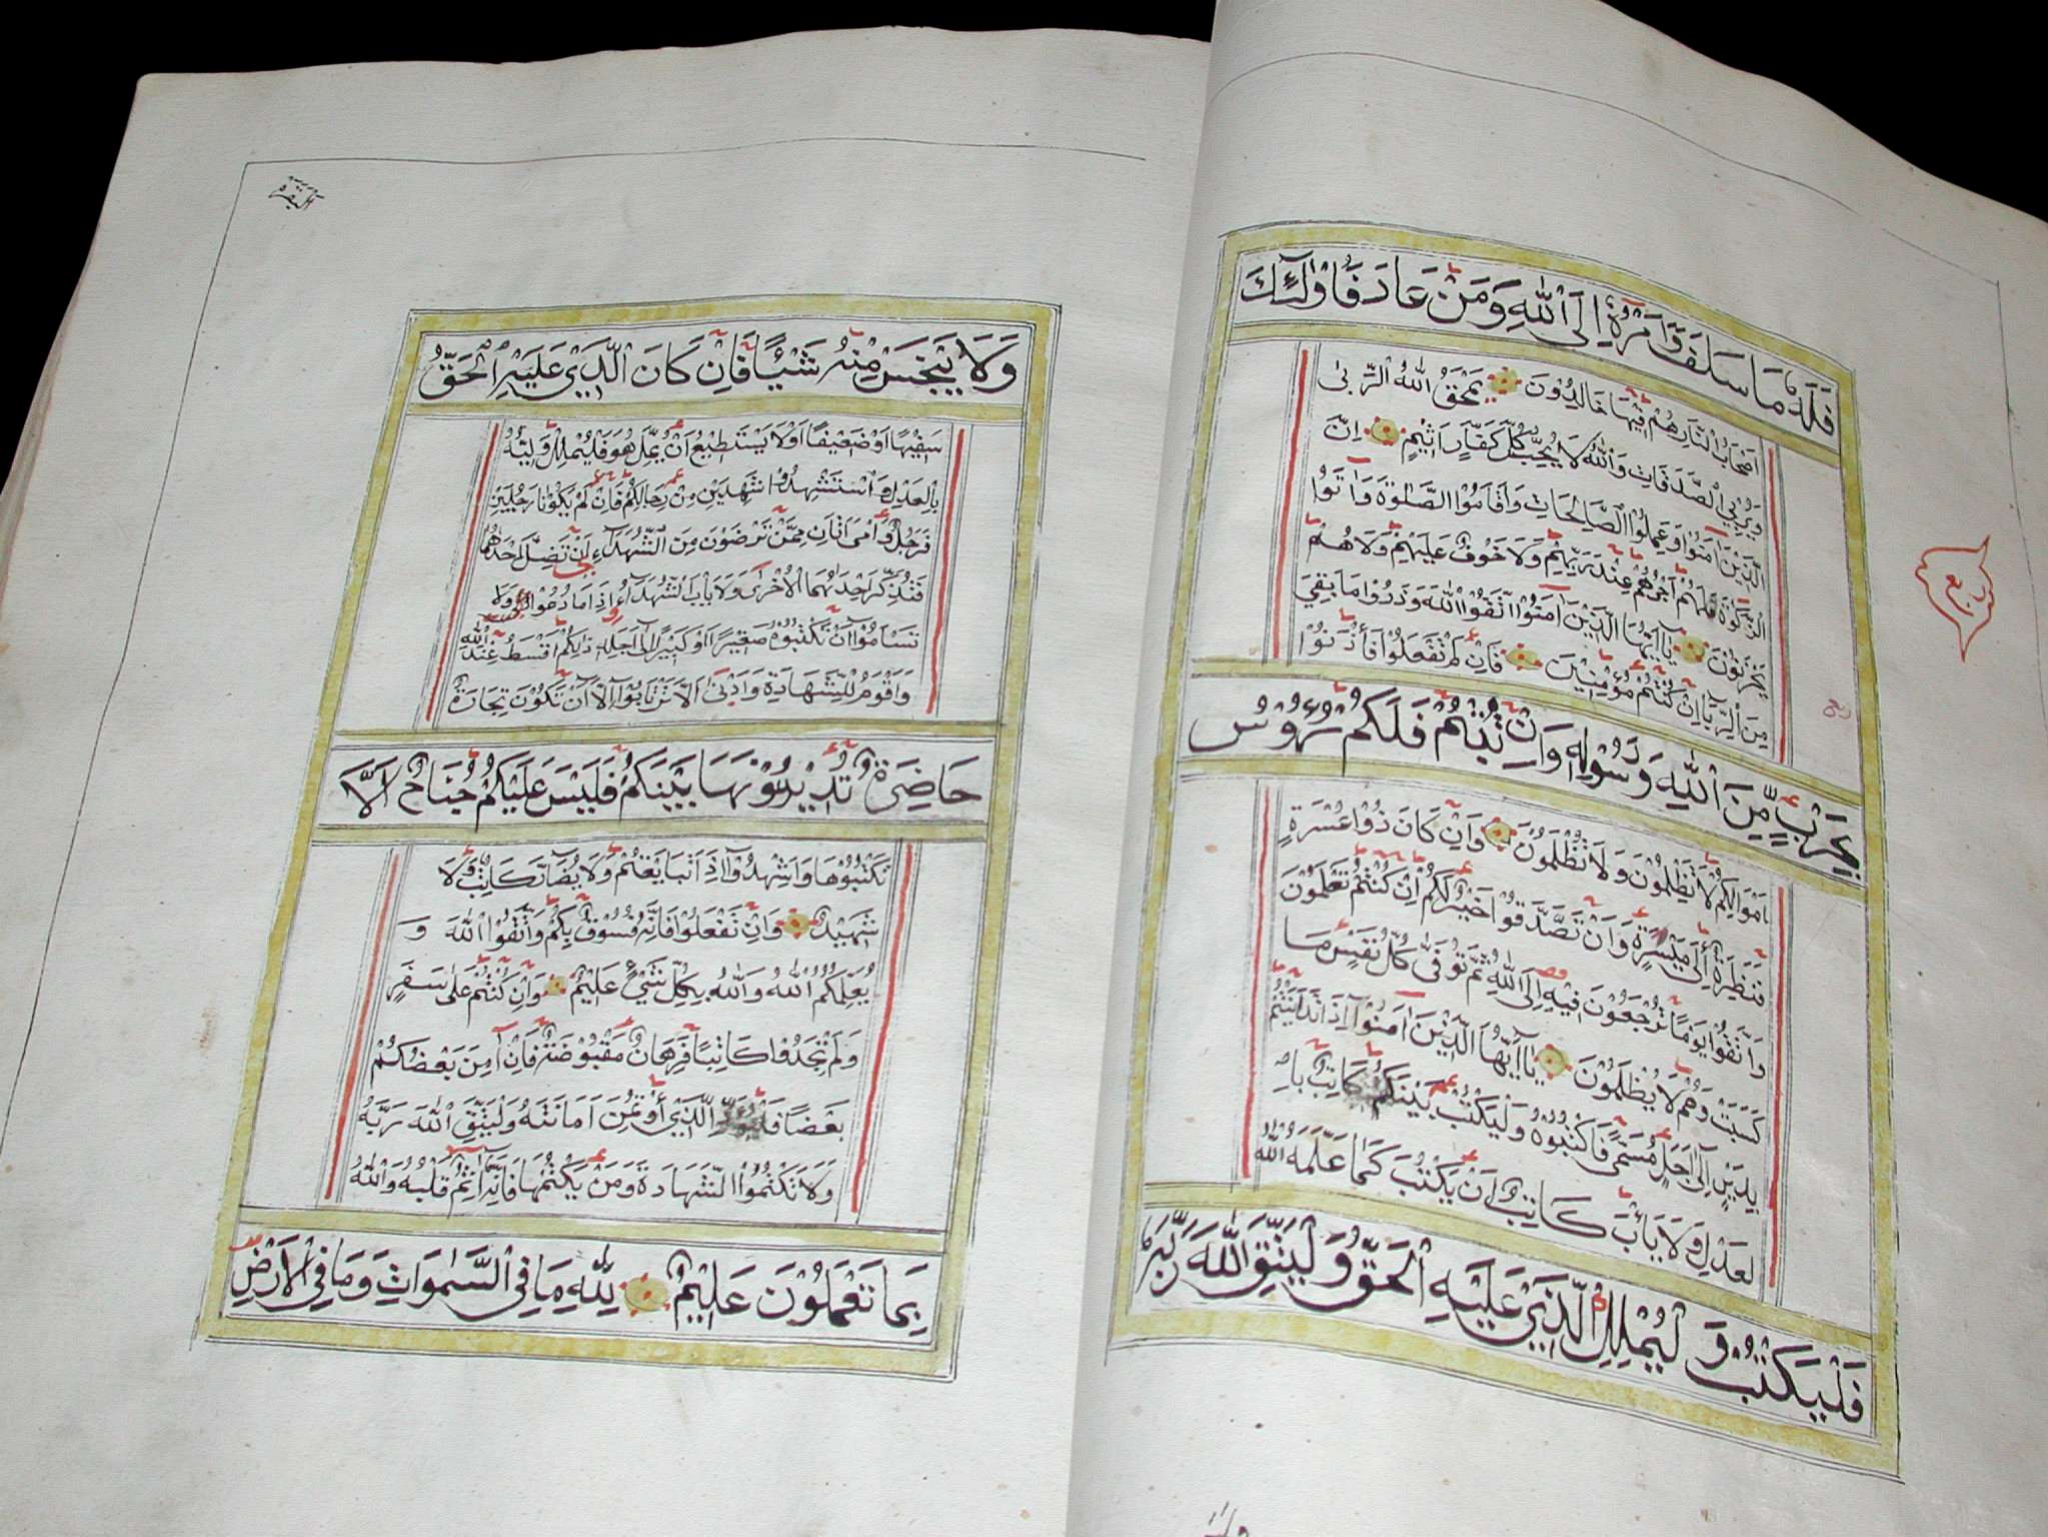 فَلَهُ مَا سَلَفَ وَاَمْرُهُ اِلَى اللّٰهِ وَمَنْ عَادَ فَاُولٰئِكَ
اَصْحَابُ النَّارِ هُمْ فِيْهَا خَالِدُوْنَ يَمْحَقُ اللّٰهُ الرِّبٰى
وَيُرْبِي الصَّدَقَاتِ وَاللّٰهُ لَا يُحِبُّ كُلَّ كَفَّارٍ اَثِيْمٍ اِنَّ
الَّذِيْنَ اٰمَنُوْا وَعَمِلُوْا الصَّالِحَاتِ وَاَقَامُوْا الصَّلٰوةَ وَاٰتَوُا
الزَّكٰوةَ فَلَهُمْ اَجْرُهُمْ عِنْدَ رَبِّهِمْ وَلَا خَوْفٌ عَلَيْهِمْ وَلَا هُمْ
يَحْزَنُوْنَ يَااَيُّهَا الَّذِيْنَ اٰمَنُوْا اتَّقُوْا اللّٰهَ وَذَرُوْا مَا بَقِيَ
مِنَ الرِّبَا اِنْ كُنْتُمْ مُؤْمِنِيْنَ فَاِنْ لَمْ تَفْعَلُوْا فَأْذَنُوْا
بِحَرْبٍ مِّنَ اللّٰهِ وَرَسُوْلِهِ وَاِنْ تُبْتُمْ فَلَكُمْ رُؤُوْسُ
اَمْوَالِكُمْ لَا تَظْلِمُوْنَ وَلَا تُظْلَمُوْنَ وَاِنْ كَانَ ذُوْا عُسْرَةٍ
فَنَظِرَةٌ اِلٰى مَيْسَرَةٍ وَاَنْ تَصَّدَّقُوْا خَيْرٌ لَكُمْ اِنْ كُنْتُمْ تَعْلَمُوْنَ
وَاتَّقُوْا يَوْمًا تُرْجَعُوْنَ فِيْهِ اِلَى اللّٰهِ ثُمَّ تُوَفّٰى كُلُّ نَفْسٍ مَا
كَسَبَتْ وَهُمْ لَا يُظْلَمُوْنَ يَااَيُّهَا الَّذِيْنَ اٰمَنُوْا اِذَا تَدَايَنْتُمْ
بِدَيْنٍ اِلٰى اَجَلٍ مُسَمًّى فَاكْتُبُوْهُ وَلْيَكْتُبْ بَيْنَكُمْ كَاتِبٌ بِا
لْعَدْلِ وَلَا يَأْبَ كَاتِبٌ اَنْ يَكْتُبَ كَمَا عَلَّمَهُ اللّٰهُ
فَلْيَكْتُبْ وَلْيُمْلِلِ الَّذِيْ عَلَيْهِ الْحَقُّ وَلْيَتَّقِ اللّٰهَ رَبَّهُ
ربع
وَلَا يَبْخَسْ مِنْهُ شَيْئًا فَاِنْ كَانَ الَّذِيْ عَلَيْهِ الْحَقُّ
سَفِيْهًا اَوْ ضَعِيْفًا اَوْ لَا يَسْتَطِيْعُ اَنْ يُمِلَّ هُوَ فَلْيُمْلِلْ وَلِيُّهُ
بِالْعَدْلِ وَاسْتَشْهِدُوْا شَهِيْدَيْنِ مِنْ رِجَالِكُمْ فَاِنْ لَمْ يَكُوْنَا رَجُلَيْنِ
فَرَجُلٌ وَامْرَاَتَانِ مِمَّنْ تَرْضَوْنَ مِنَ الشُّهَدَاءِ اَنْ تَضِلَّ اِحْدٰهُمَا
فَتُذَكِّرَ اِحْدٰىهُمَا الْاُخْرٰى وَلَا يَأْبَ الشُّهَدَاءُ اِذَا مَا دُعُوْا وَلَا
تَسْاَمُوْا اَنْ تَكْتُبُوْهُ صَغِيْرًا اَوْ كَبِيْرًا اِلٰى اَجَلِهِ ذٰلِكُمْ اَقْسَطُ عِنْدَ اللّٰهِ
وَاَقْوَمُ لِلشَّهَادَةِ وَاَدْنٰى اَلَّا تَرْتَابُوْا اِلَّا اَنْ تَكُوْنَ تِجَارَةً
حَاضِرَةً تُدِيْرُوْنَهَا بَيْنَكُمْ فَلَيْسَ عَلَيْكُمْ جُنَاحٌ اَلَّا
تَكْتُبُوْهَا وَاَشْهِدُوْا اِذَا تَبَايَعْتُمْ وَلَا يُضَارَّ كَاتِبٌ وَلَا
شَهِيْدٌ وَاِنْ تَفْعَلُوْا فَاِنَّهُ فُسُوْقٌ بِكُمْ وَاتَّقُوْا اللّٰهَ وَ
يُعَلِّمُكُمُ اللّٰهُ وَاللّٰهُ بِكُلِّ شَيْءٍ عَلِيْمٌ وَاِنْ كُنْتُمْ عَلٰى سَفَرٍ
وَلَمْ تَجِدُوْا كَاتِبًا فَرِهَانٌ مَقْبُوْضَةٌ فَاِنْ اَمِنَ بَعْضُكُمْ
بَعْضًا فَلْيُؤَدِّ الَّذِي اؤْتُمِنَ اَمَانَتَهُ وَلْيَتَّقِ اللّٰهَ رَبَّهُ
وَلَا تَكْتُمُوْا الشَّهَادَةَ وَمَنْ يَكْتُمْهَا فَاِنَّهُ اٰثِمٌ قَلْبُهُ وَاللّٰهُ
بِمَا تَعْمَلُوْنَ عَلِيْمٌ لِلّٰهِ مَا فِي السَّمٰوَاتِ وَمَا فِي الْاَرْضِ